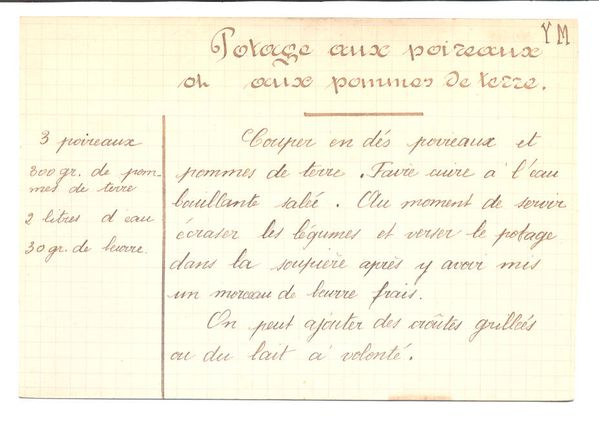 YM
Potage aux poireaux
et aux pommes de terre.
3 poireaux
300 gr. de pom-
mes de terre
2 litres d'eau
30 gr. de beurre.
Couper en dés poireaux et
pommes de terre. Faire cuire à l'eau
bouillante salée. Au moment de servir
écraser les légumes et verser le potage
dans la soupière après y avoir mis
un morceau de beurre frais.
On peut ajouter des croûtes grillées
ou du lait à volonté.